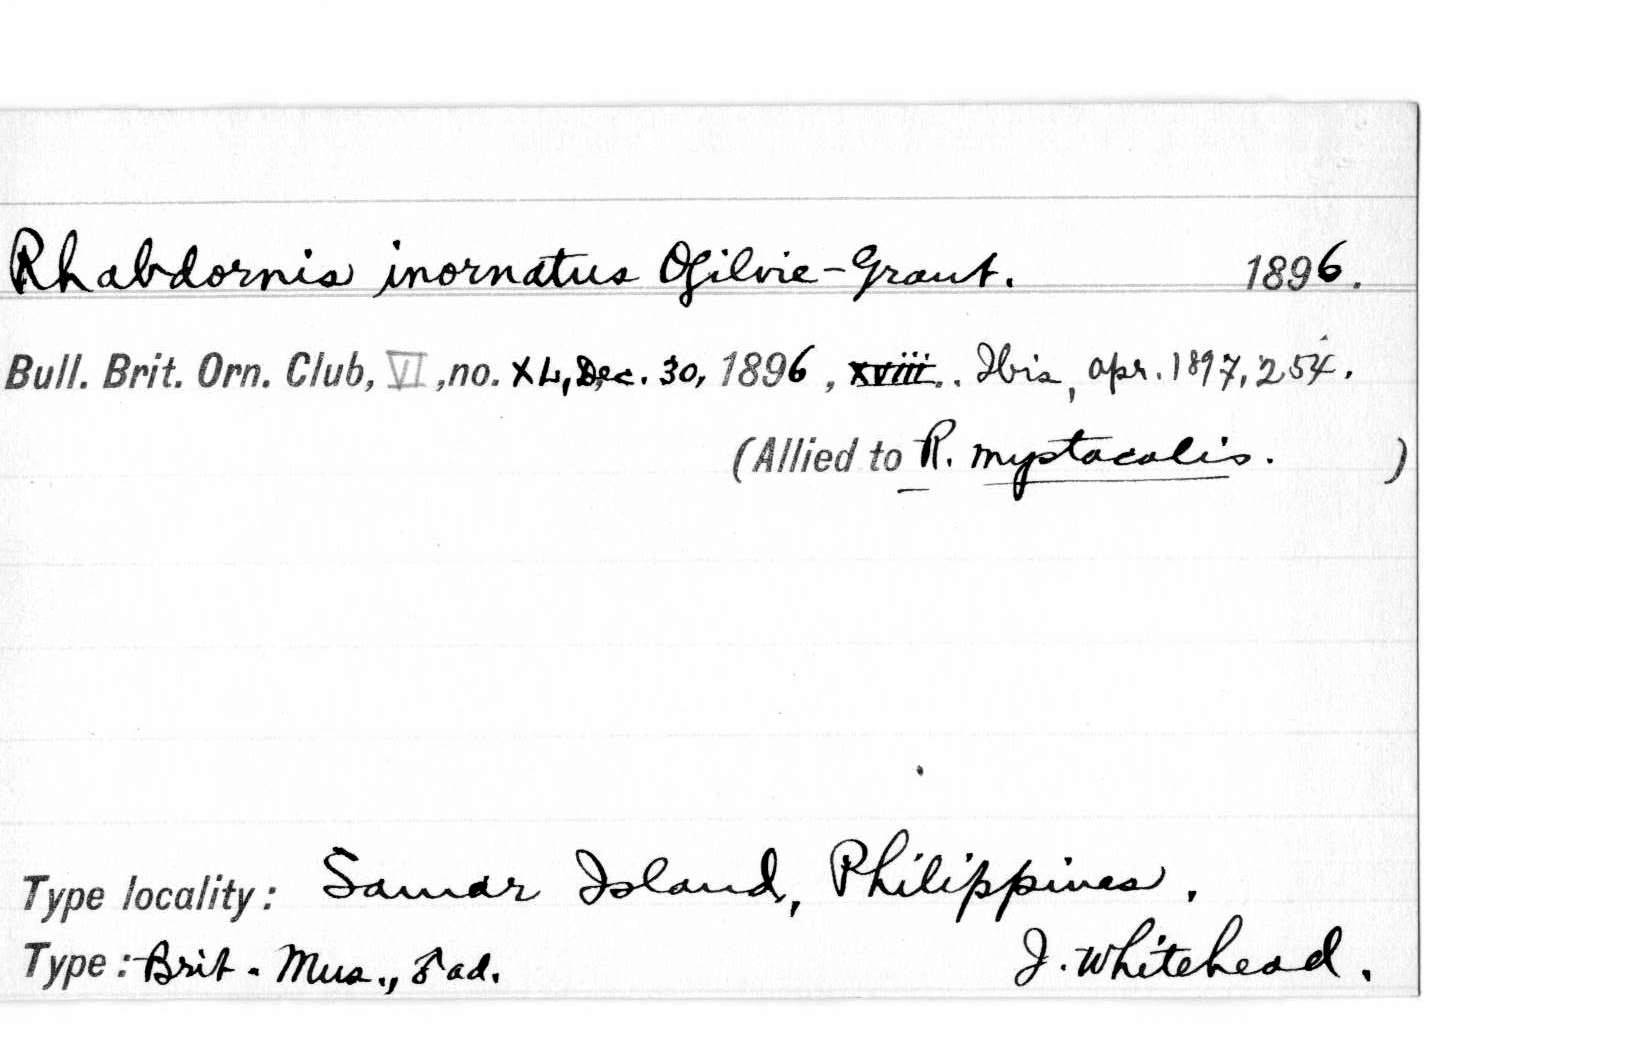 Rhabdornis inornatus Ogilvie-Grant. 1896.
Bull. Brit. Orn. Club, VI, no. XL, Dec. 30, 1896, xviii.. Ibis, apr. 1897, 254.
(Allied to R. mystacalis. )
Type locality: Samar Island, Philippines.
Type: Brit. Mus., ♂ ad. J. Whitehead.